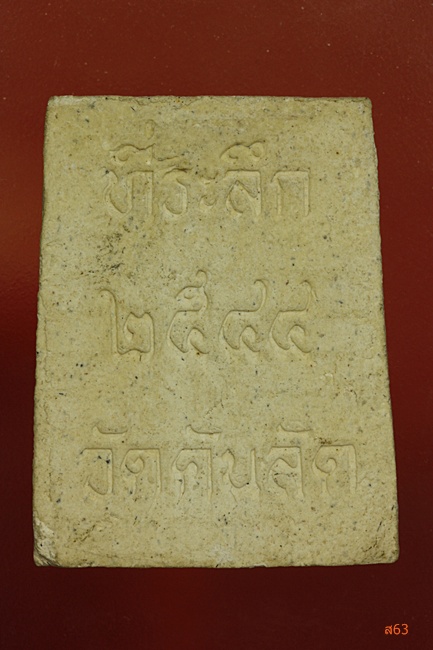 ที่ระลึก
๒๕๔๔
วัดคันลัด
ส63